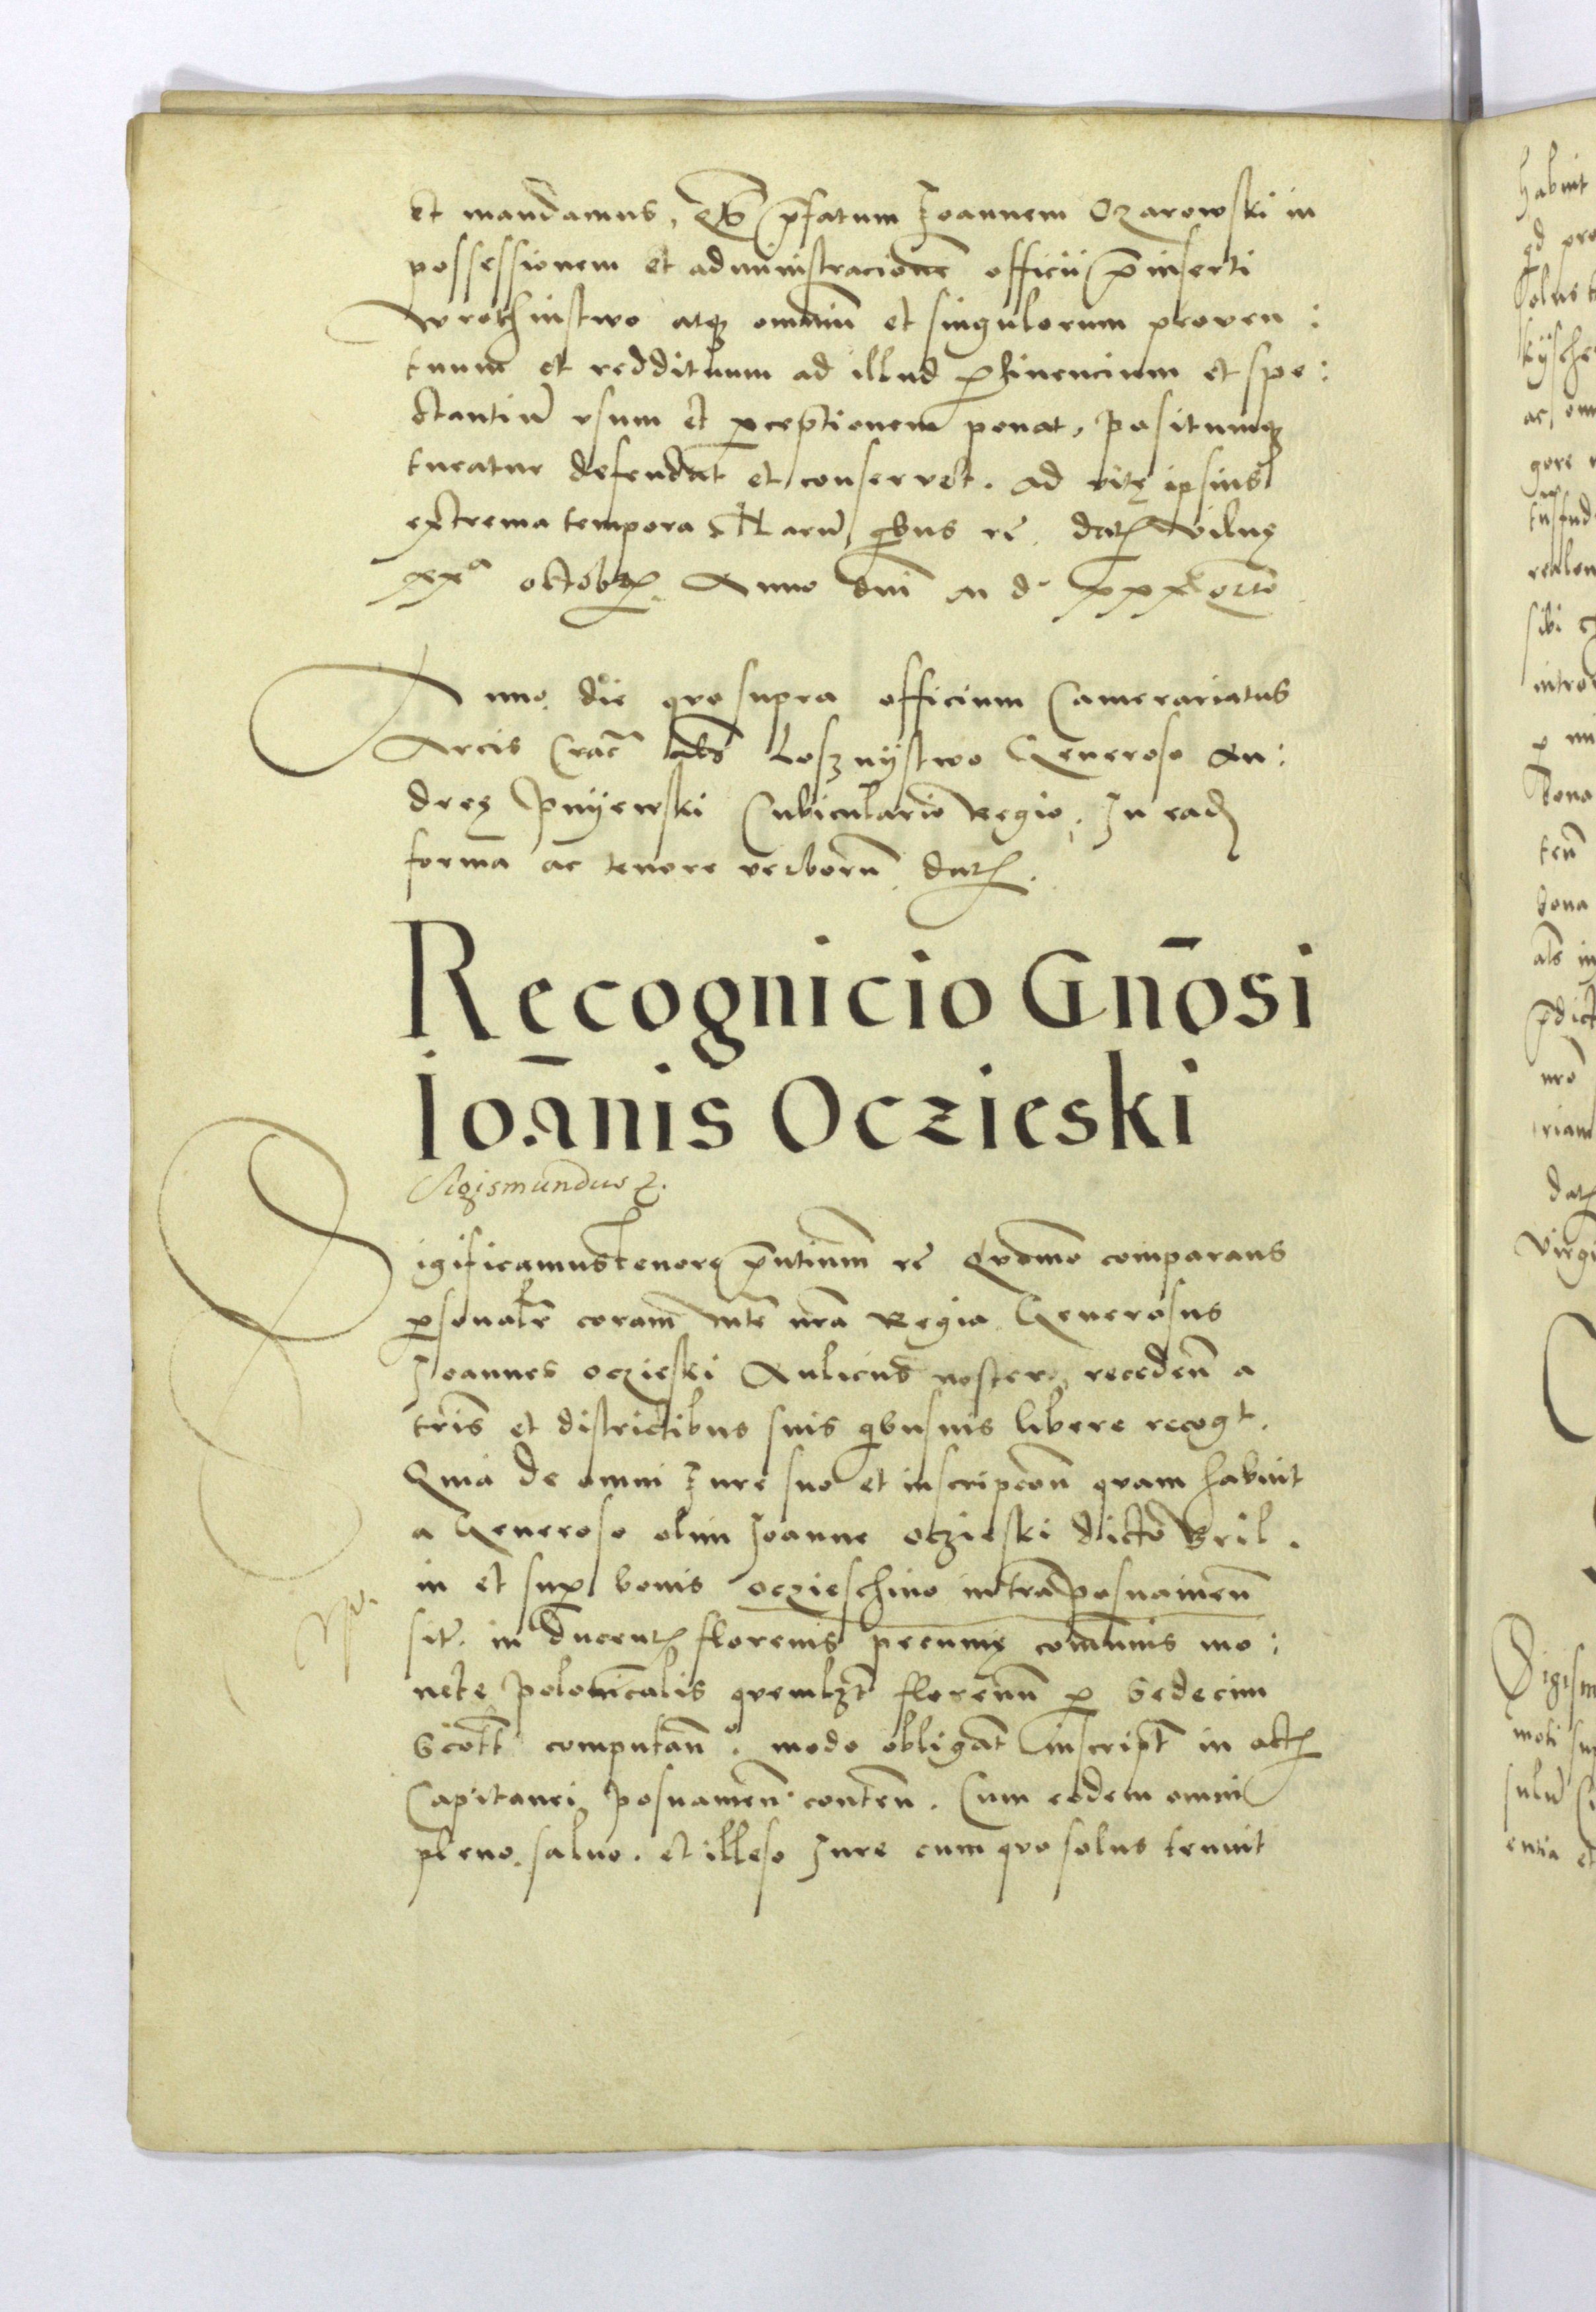 et mandamus, qt̃s p̃fatum Joannem Ozarowski in
possessionem et administracionẽ officii p̃inserti
wrothinstwo atqʒ omniũ et singulorum proven:
tuum et reddituum ad illud ꝑtinencium et spe:
ctantiũ usum et ꝑceptionem ponat, positumqʒ
tueatur defendat et conservet. ad vitę ipsius
extrema tempora Harũ qbus rẽ. datꝭ Vilnę
xxª octobrꝭ. Anno dni M dº xxx
Anno, die quo supra officium Camerariatus
Arcis Crac̃ als̃ Losznystwo Generoso An:
dreę Pnijewski Cubiculario Regio. In eadꝭ
forma ac tenore verborũ. datꝭ.
Recognicio Gn̄osi
Ioānis Oczieski
Sigismundus ꝛ.
Sigificamus tenore p̃ntium rẽ Quomo comparans
ꝑsonalr̃ coram Mte nr̃a Regia Generosus
Joannes oczieski Aulicus noster, recedeñ a
tr̃is et districtibus suis qbusvis libere recogt.
Quia de omni Jure suo et inscripcoñ quam habuit
a Generoso olim Joanne oczieski dicto Bril.
in et suꝑ bonis oczieschino in tr̃a posnanieñ
sit̃. in ducentꝭ florenis pecunię comunis mo:
netę polonicalis quemlʒt florenũ ꝑ Sedecim
Scott̃ computañ. modo obligat̃ inscript̃ in actꝭ
Capitanei posnanieñ. conteñ. Cum eodem omni
pleno. salvo. et illeso Jure cum quo solus tenuit